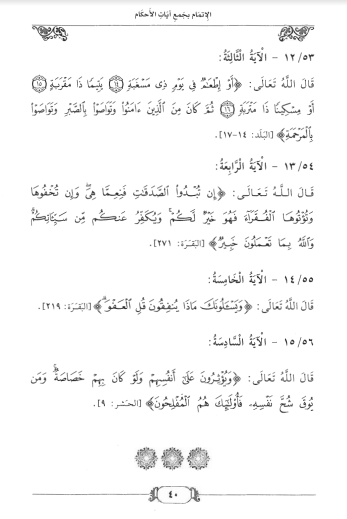 الإتمام بجمع آيات الأحكام
١٢/٥٣ - الْآيَةُ الثَّالِثَةُ:
قَالَ اللَّهُ تَعَالَى: ﴿أَوْ إِطْعَٰمٌ فِي يَوْمٍ ذِي مَسْغَبَةٍ ١٤ يَتِيمًا ذَا مَقْرَبَةٍ ١٥
أَوْ مِسْكِينًا ذَا مَتْرَبَةٍ ١٦ ثُمَّ كَانَ مِنَ الَّذِينَ ءَامَنُوا وَتَوَاصَوْا بِالصَّبْرِ وَتَوَاصَوْا
بِالْمَرْحَمَةِ﴾ [البَلَد: ١٤-١٧].
١٣/٥٤ - الْآيَةُ الرَّابِعَةُ:
قَالَ اللهُ تَعَالَى: ﴿إِن تُبْدُوا الصَّدَقَٰتِ فَنِعِمَّا هِيَ وَإِن تُخْفُوهَا
وَتُؤْتُوهَا الْفُقَرَآءَ فَهُوَ خَيْرٌ لَّكُمْ وَيُكَفِّرُ عَنكُم مِّن سَيِّئَاتِكُمْ
وَاللَّهُ بِمَا تَعْمَلُونَ خَبِيرٌ﴾ [البَقَرَة: ٢٧١].
١٤/٥٥ - الْآيَةُ الْخَامِسَةُ:
قَالَ اللَّهُ تَعَالَى: ﴿وَيَسْـَٔلُونَكَ مَاذَا يُنفِقُونَ قُلِ الْعَفْوَ﴾ [البَقَرَة: ٢١٩].
١٥/٥٦ - الْآيَةُ السَّادِسَةُ:
قَالَ اللَّهُ تَعَالَى: ﴿وَيُؤْثِرُونَ عَلَىٰ أَنفُسِهِمْ وَلَوْ كَانَ بِهِمْ خَصَاصَةٌ وَمَن
يُوقَ شُحَّ نَفْسِهِ فَأُولَٰٓئِكَ هُمُ الْمُفْلِحُونَ﴾ [الحَشر: ٩].
٤٠